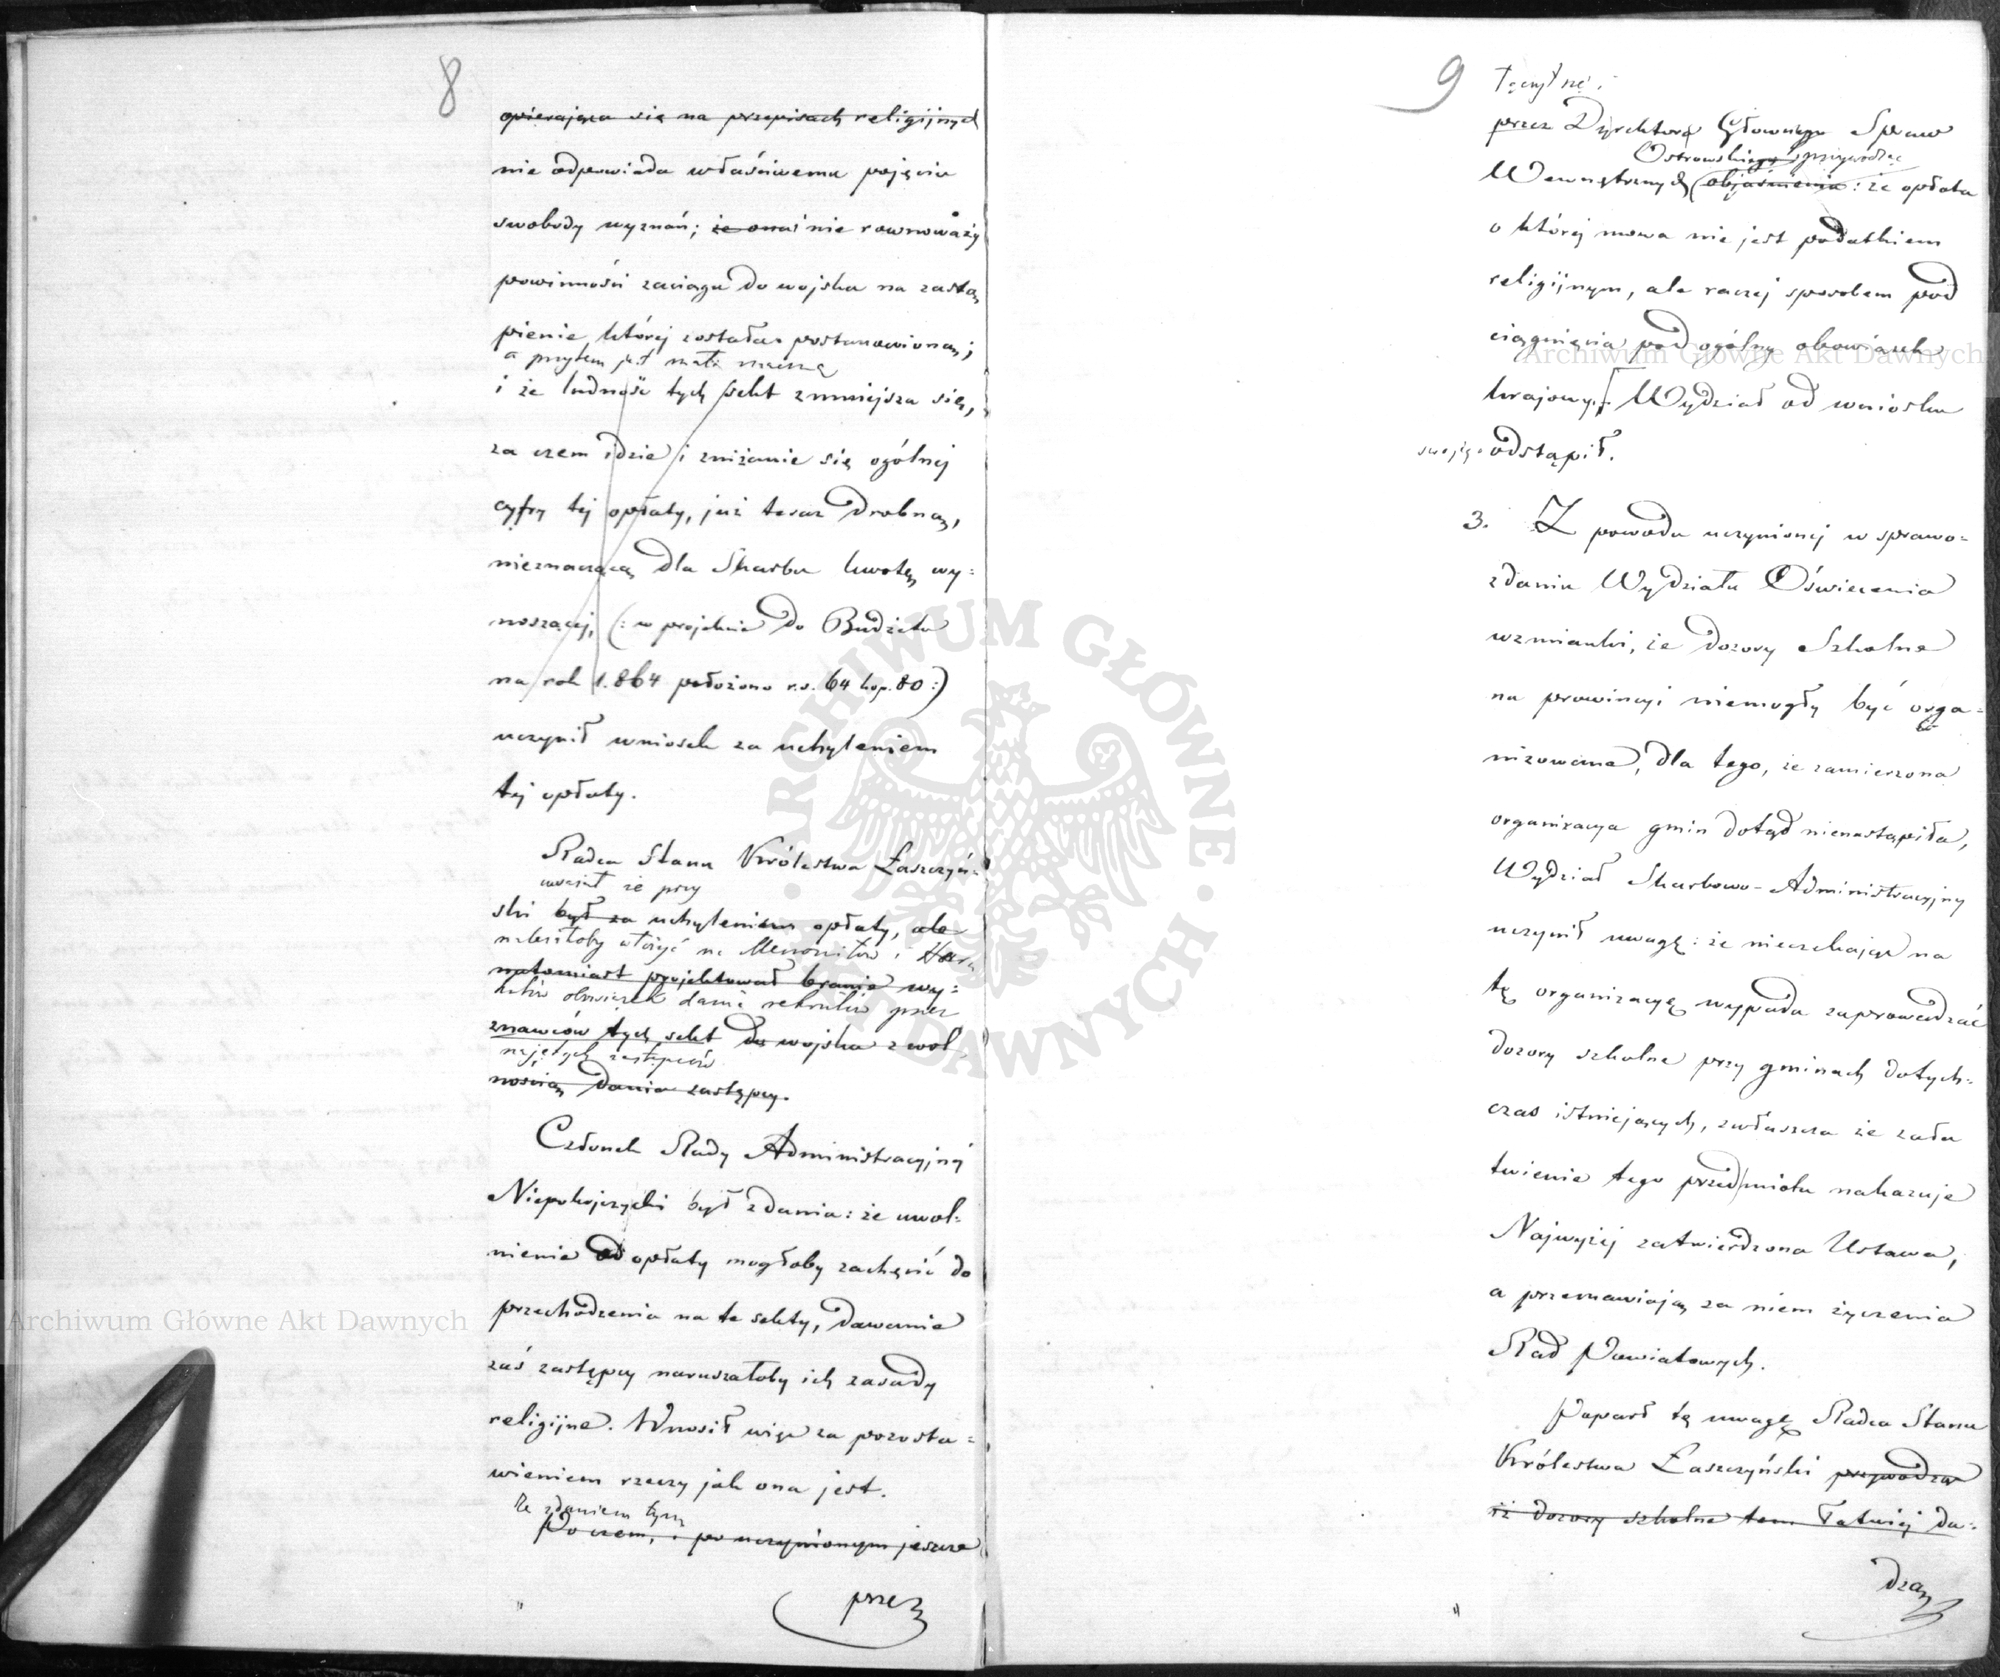 8
opierająca się na przepisach religijnych
nie odpowiada właściwemu pojęciu
swobody wyznań; że ona nie rownoważy
powinności zaciągu do wojska na zastą
pienie której została postanowioną;
a przytem jest mało znaczną
i że ludność tych sekt zmniejsza się,
za czem idzie i zniżanie się ogólnej
cyfry tej opłaty, już teraz drobną,
nieznaczącą dla Skarbu kwotę wy-
noszącej, (: w projekcie do Budżetu
na rok 1.864 położono r.s. 64 kop. 80 :)
uczynił wniosek za uchyleniem
tej opłaty.
Radca Stanu Królestwa Łaszczyń-
uważał że przy
ski był za uchyleniem opłaty, ale
należałoby włożyć na Menonitów i
natomiast projektował branie wy-
obowiązek dania rekrutów przez
znawców tych sekt do wojska z wol
najętych zastępców
nością dania zastępcy.
Członek Rady Administracyjnej
Niepokojczycki był zdania: że uwol-
nienie od opłaty mogłoby zachęcić do
przechodzenia na te sekty, dawanie
zaś zastępcy naruszałoby ich zasady
religijne. Wnosił więc za pozosta-
wieniem rzeczy jak ona jest.
Ze zdaniem tym
Po czem, i po uczynionym jeszcze
przez
9
przez Dyrektora Głównego Spraw
Ostrowskiego
Wewnętrznych objaśnieniu: że opłata
o której mowa nie jest podatkiem
religijnym, ale raczej sposobem pod
ciągnięcia pod ogólny obowiązek
krajowy, Wydział od wniosku
swojego odstąpił.
3. Z powodu uczynionej w sprawo-
zdaniu Wydziału Oświecenia
wzmianki, że dozory Szkolne
na prowincyi niemogły być orga-
nizowane, dla tego, że zamierzona
organizacya gmin dotąd nienastąpiła,
Wydział Skarbowo-Administracyjny
uczynił uwagę: że nieczekając na
tę organizacyę wypada zaprowadzać
dozory szkolne przy gminach dotych-
czas istniejących, zwłaszcza że zała
twienie tego przedmiotu nakazuje
Najwyżej zatwierdzona Ustawa,
a przemawiają za niem życzenia
Rad Powiatowych.
Poparł tę uwagę Radca Stanu
Królestwa Łaszczyński przywodząc
iż dozory szkolne tem łatwiej da-
dzą
ARCHIWUM GŁÓWNE AKT DAWNYCH
Archiwum Główne Akt Dawnych
Archiwum Główne Akt Dawnych